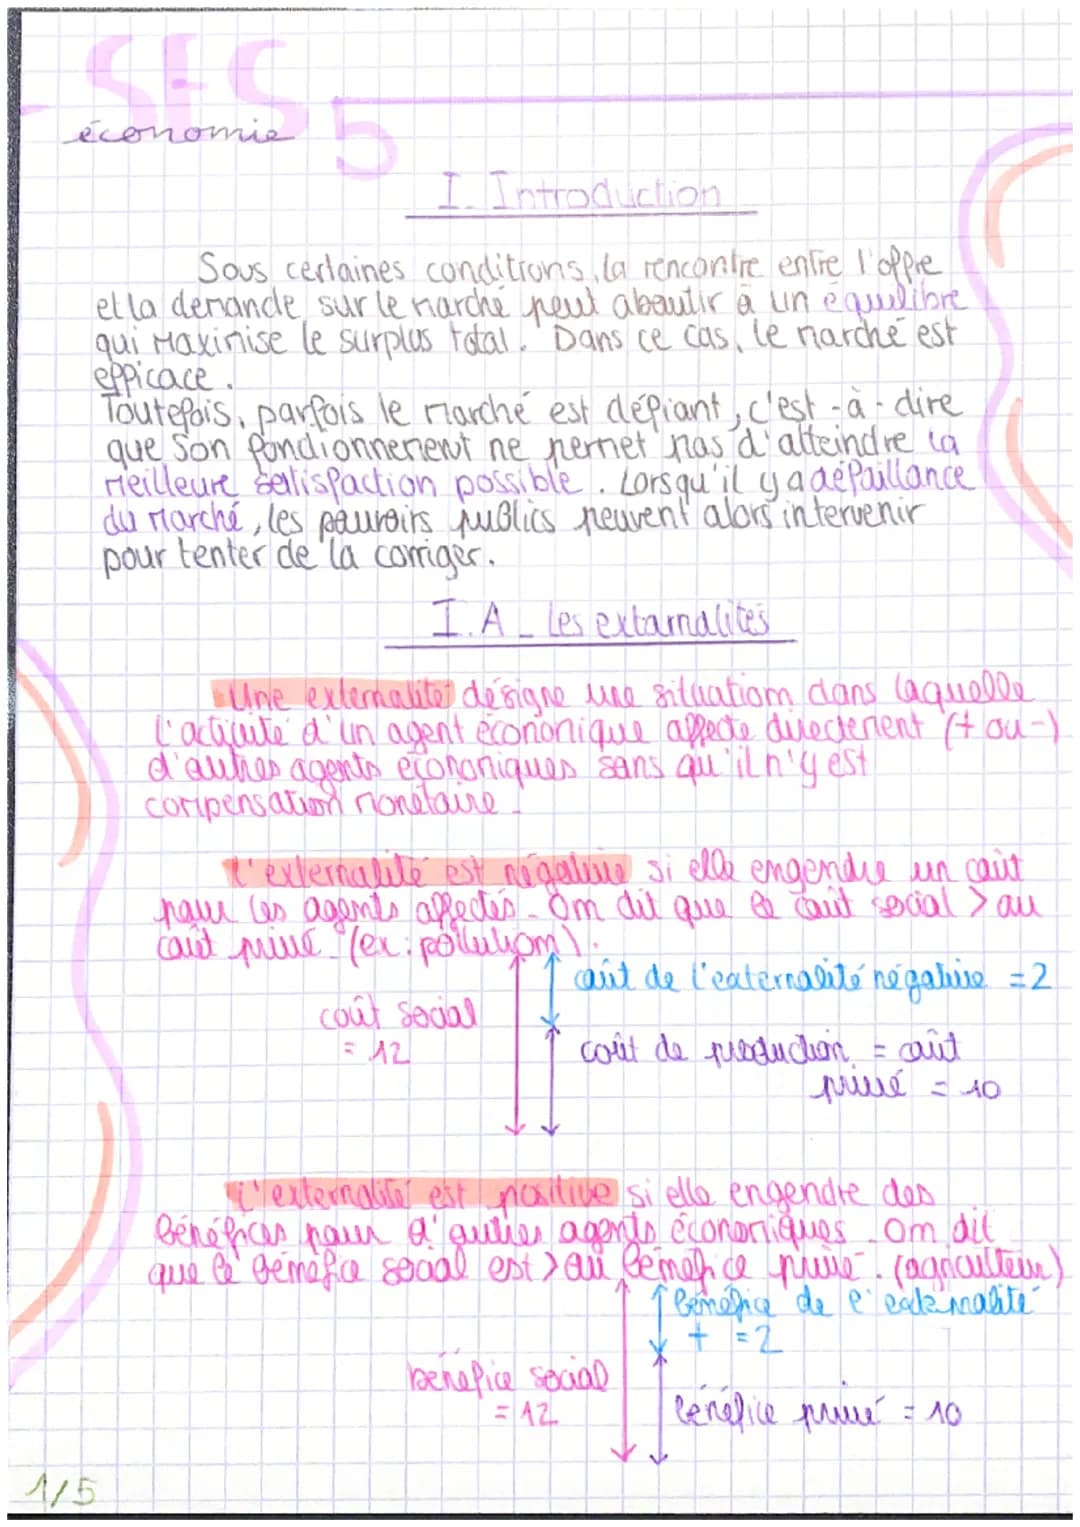 - SES 5
économie
I. Introduction
Sous certaines conditions, la rencontre entre l'offre
et la demande sur le marché peut aboutir à un équilibre
qui Maximise le surplus total. Dans ce cas, le marché est
efficace.
Toutefois, parfois le marché est défiant, c'est-à-dire
que son fonctionnement ne permet pas d'atteindre la
Meilleure satisfaction possible. Lorsqu'il y a défaillance
du Marché, les pouvoirs publics peuvent alors intervenir
pour tenter de la corriger.
I.A _ Les extarnalités
Une externalité désigne une situation dans laquelle
l'activité d'un agent économique affecte directement (+ ou -)
d'autres agents économiques sans qu'il n'y est
compensation monétaire.
L'externalité est négative si elle engendre un coût
pour les agents affectés. On dit que le coût social > au
coût privé (ex: pollution).
coût de l'externalité négative = 2
coût social
= 12
coût de production = coût
privé = 10
L'externalité est positive si elle engendre des
bénéfices pour d'autres agents économiques. On dit
que le bénéfice social est > au bénéfice privé. (agriculteur)
bénéfice de l'externalité
+ = 2
bénéfice social
= 12
bénéfice privé = 10
1/5